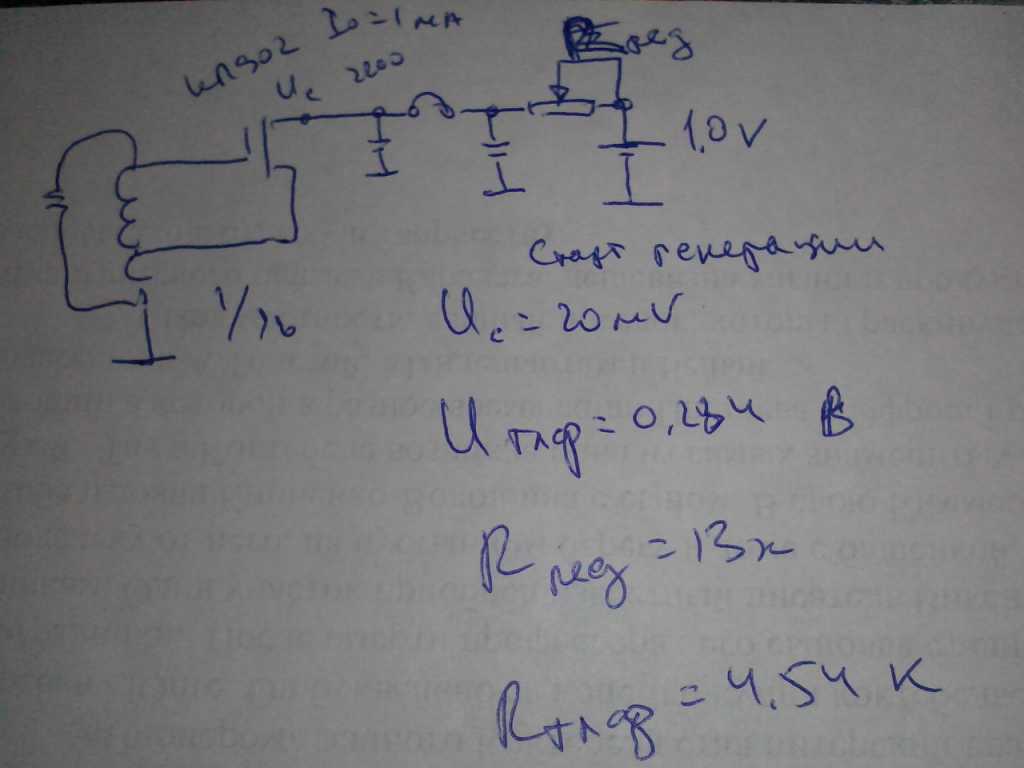 КП302 I₀=1мА
Uс 2200
рег
1,0V
1/36
Старт генерации
Uс=20мV
Uтлф=0,284 В
Rрег=13к
Rтлф=4.54К